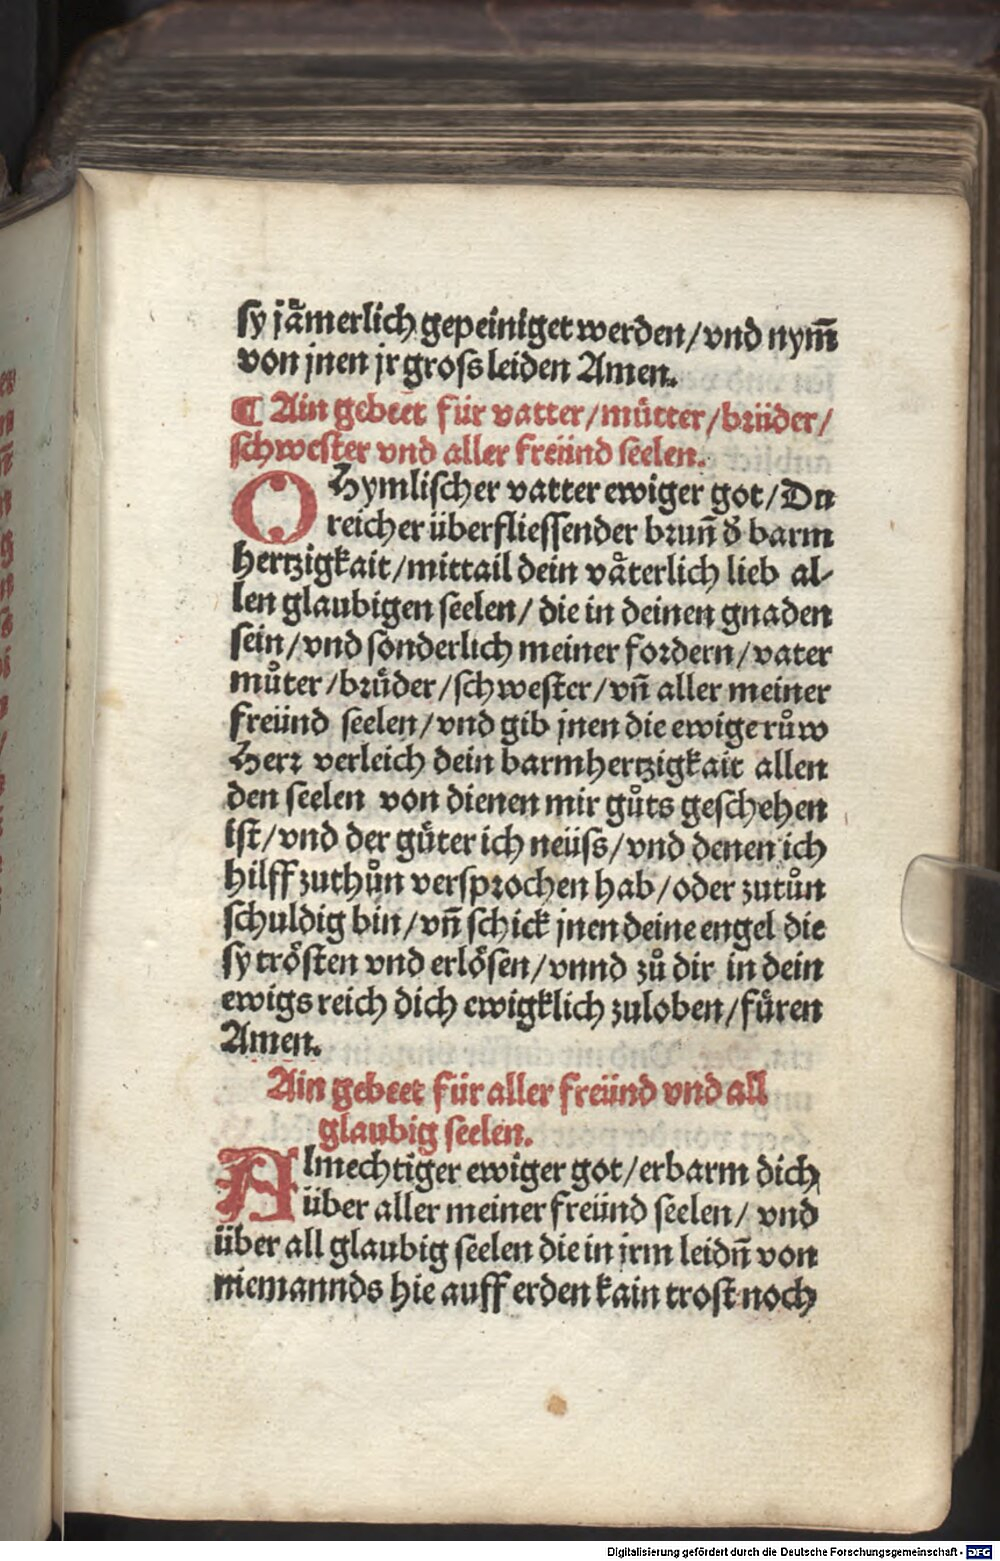 sy jaͤmerlich gepeiniget werden/vnd nym̅
von jnen jr gross leiden Amen.
¶ Ain gebeet für vatter/můtter/brüder/
schwester vnd aller freünd seelen.
O Hymlischer vatter ewiger got/Du
reicher überfliessender brun̅ d̓ barm
hertzigkait/mittail dein vaͤterlich lieb al-
len glaubigen seelen/ die in deinen gnaden
sein/vnd sonderlich meiner fordern/vater
můter/bruͤder/schwester/vn̅ aller meiner
freünd seelen/vnd gib jnen die ewige růw
Herr verleich dein barmhertzigkait allen
den seelen von dienen mir gůts geschehen
ist/vnd der guͤter ich neüss/vnd denen ich
hilff zuthůn versprochen hab/oder zutůn
schuldig bin/vn̅ schick jnen deine engel die
sy troͤsten vnd erloͤsen/vnnd zů dir in dein
ewigs reich dich ewigklich zuloben/fuͤren
Amen.
Ain gebeet für aller freünd vnd all
glaubig seelen.
Almechtiger ewiger got/erbarm dich
über aller meiner freünd seelen/ vnd
über all glaubig seelen die in jrm leidn̅ von
niemannds hie auff erden kain trost noch
Digitalisierung gefördert durch die Deutsche Forschungsgemeinschaft - DFG